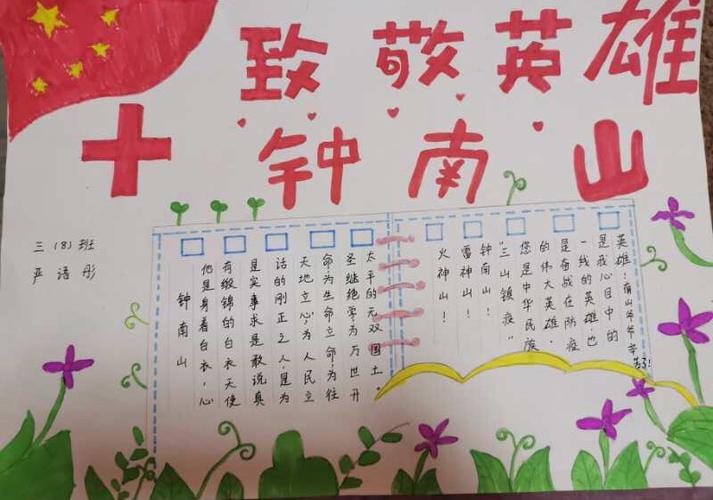 致敬英雄
钟南山
三（8）班
严语彤
钟南山
他是身着白衣，心
有缎锦的白衣天使
是实事求是敢说真
话的刚正之人，是为
天地立心，为人民立
命，为生命立命，为往
圣继绝学，为万世开
太平的无双国士。
火神山！
雷神山！
钟南山！
“三山镇疫”
您是中华民族
的伟大英雄。
是奋战在防疫
一线的英雄。也
是我心目中的
英雄！南山爷爷辛
苦了！